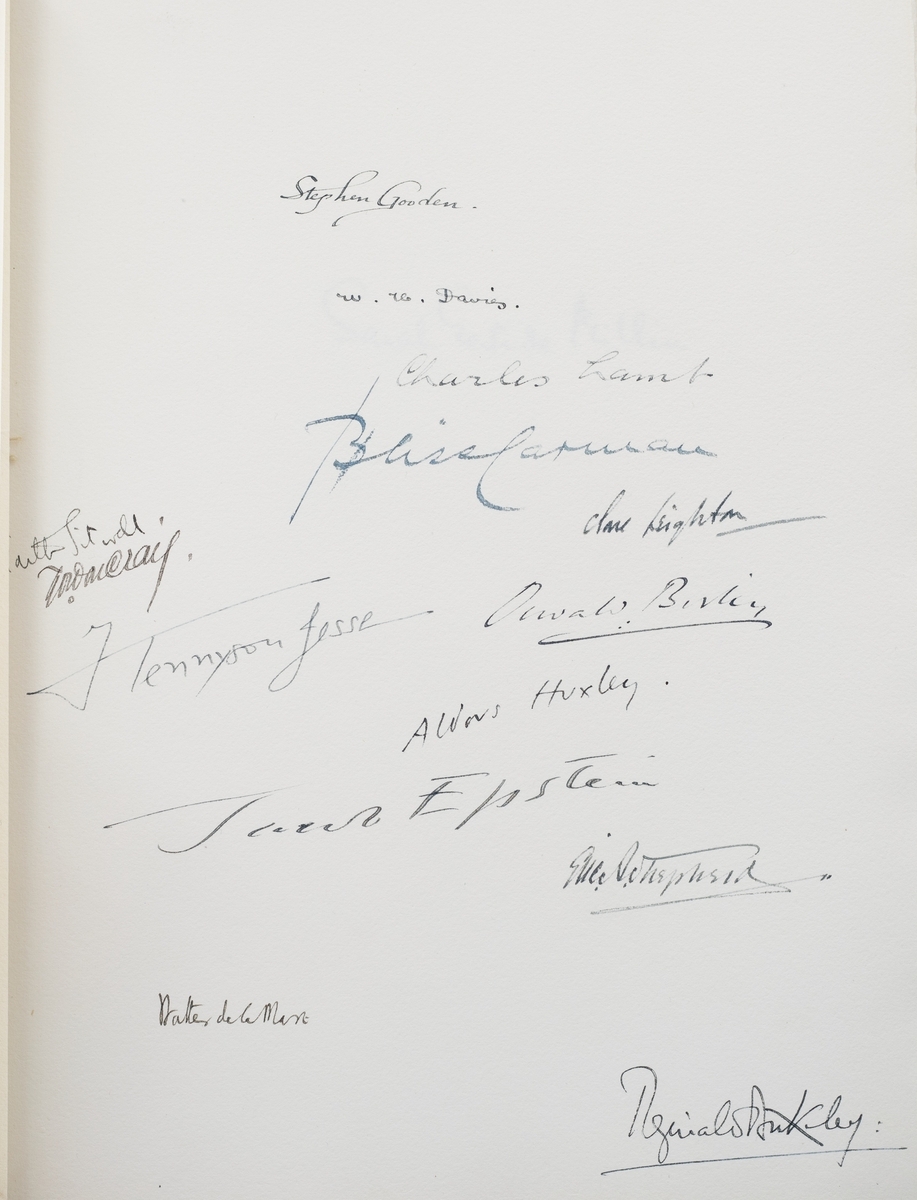 Stephen Gooden.
W. H. Davies.
Charles Lamb
Bliss Carman
Clare Leighton
Edith Sitwell.
F Tennyson Jesse
Oswald Birley
Aldous Huxley.
Jacob Epstein
Shepherd
Walter de la Mare
Reginald